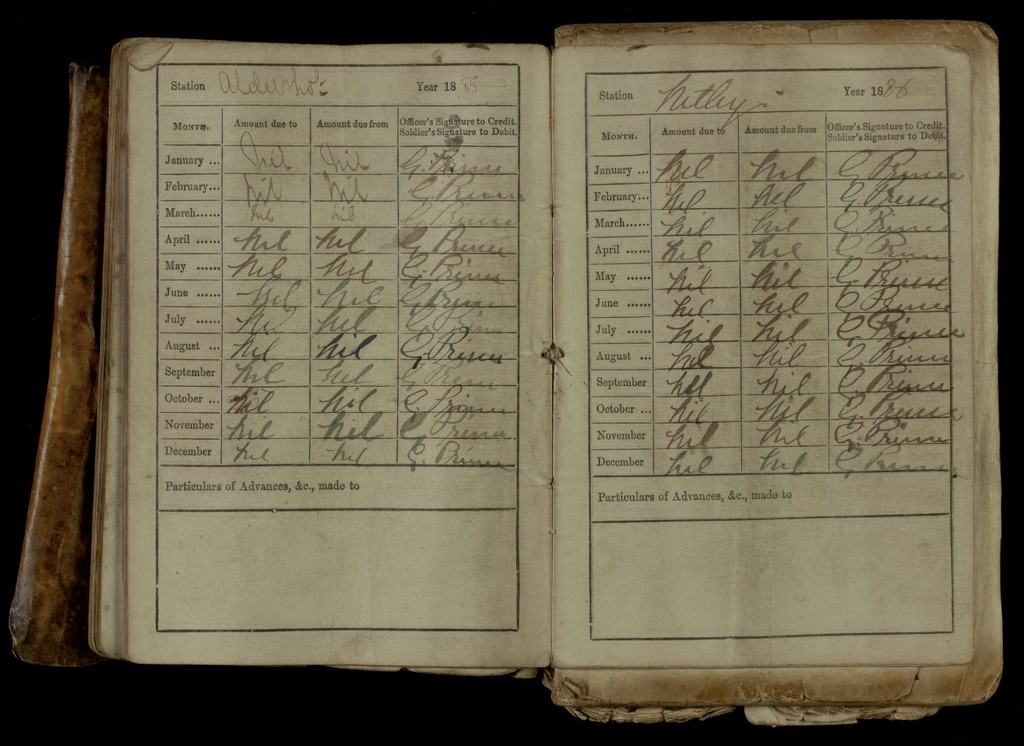 Station Aldershot Year 1885
MONTH. Amount due to Amount due from Officer's Signature to Credit. Soldier's Signature to Debit.
January ... Nil Nil G. Prince
February... Nil Nil G Prince
March...... Nil Nil G Prince
April ...... Nil Nil G Prince
May ...... Nil Nil G. Prince
June ...... Nil Nil G Prince
July ...... Nil Nil G Prince
August ... Nil Nil G Prince
September Nil Nil G Prince
October ... Nil Nil G. Prince
November Nil Nil G Prince
December Nil Nil G. Prince
Particulars of Advances, &c., made to
Station Netley. Year 1886
MONTH. Amount due to Amount due from Officer's Signature to Credit. Soldier's Signature to Debit.
January ... Nil Nil G Prince
February... Nil Nil G Prince
March...... Nil Nil G. Prince
April ...... Nil Nil G Prince
May ...... Nil Nil G Prince
June ...... Nil Nil G Prince
July ...... Nil Nil G. Prince
August ... Nil Nil G Prince
September Nil Nil G. Prince
October ... Nil Nil G. Prince
November Nil Nil G. Prince
December Nil Nil G Prince
Particulars of Advances, &c., made to